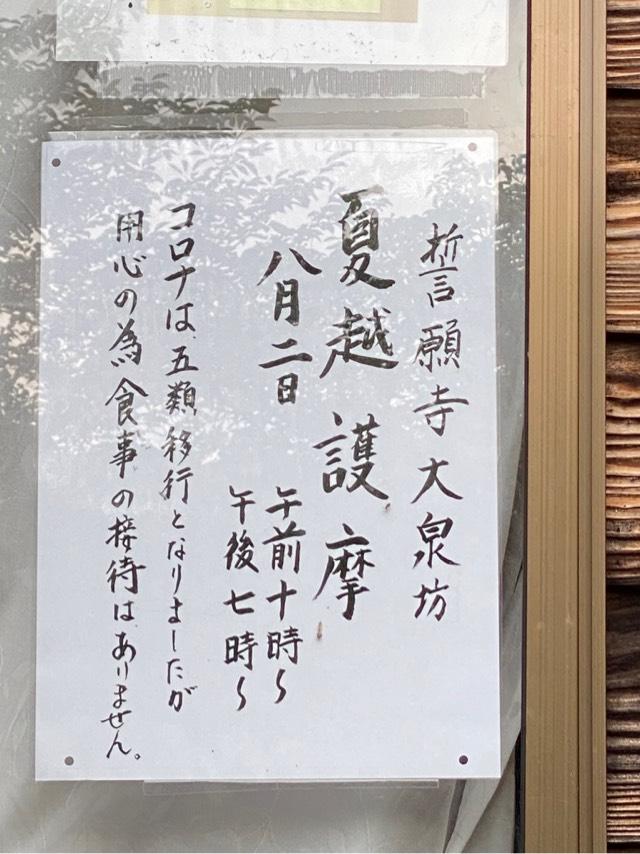 誓願寺大泉坊
夏越護摩
八月二日
午前十時〜
午後七時〜
コロナは、五類移行となりましたが
用心の為食事の接待はありません。